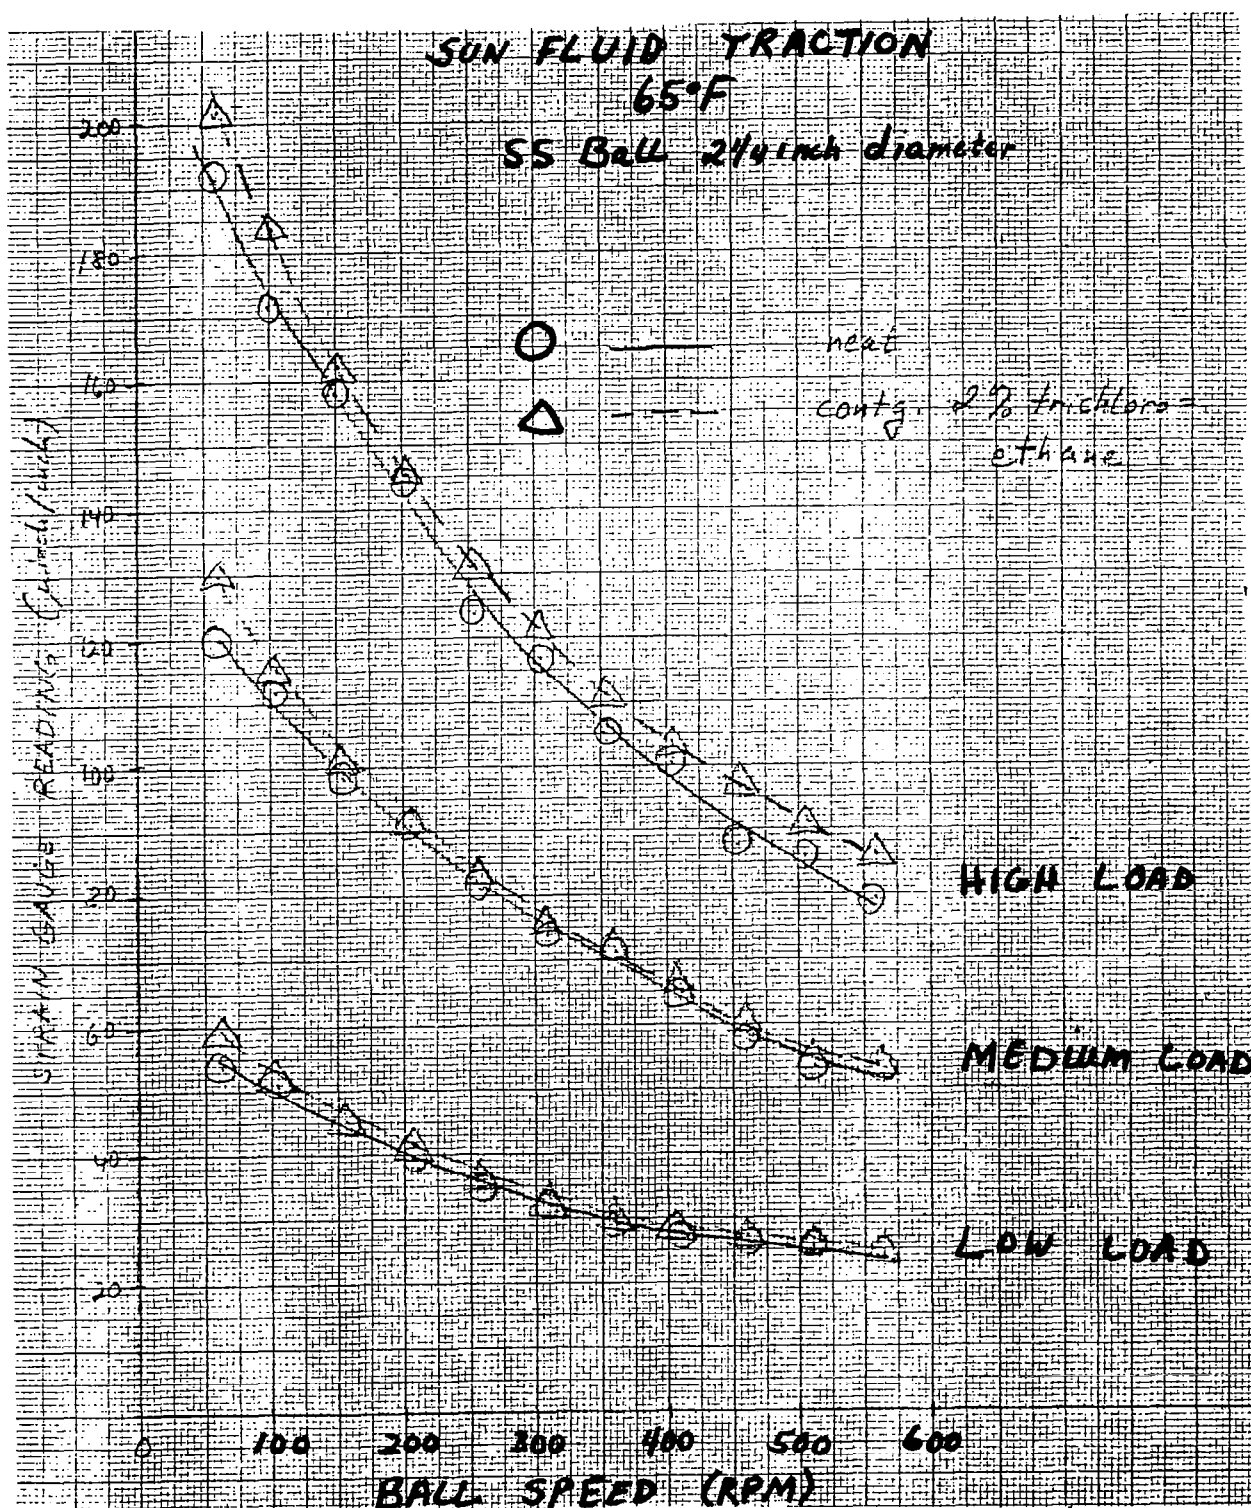 SUN FLUID TRACTION
65°F
SS Ball 2 1/4 inch diameter
neat
contg. 2% trichloro=
ethane
STRAIN GAUGE READING, (μinch/inch)
200
180
160
140
120
100
80
60
40
20
HIGH LOAD
MEDIUM LOAD
LOW LOAD
0 100 200 300 400 500 600
BALL SPEED (RPM)